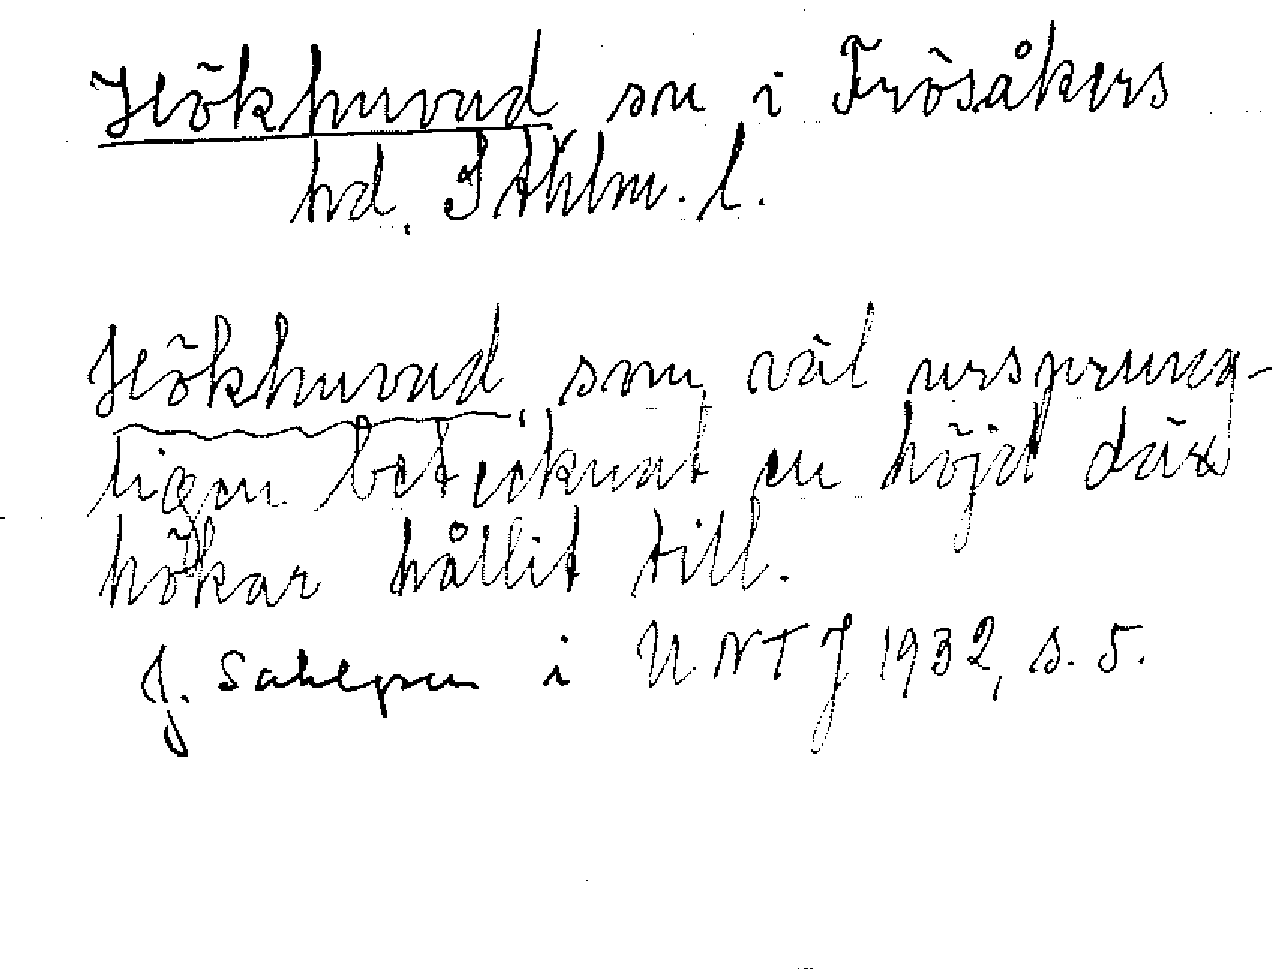 Hökhuvud sn i Frösåkers
hd. Sthlm. l.
Hökhuvud, som väl ursprung-
ligen betecknat en höjd där
hökar hållit till.
J. Sahlgren i UNTJ 1932, s. 5.